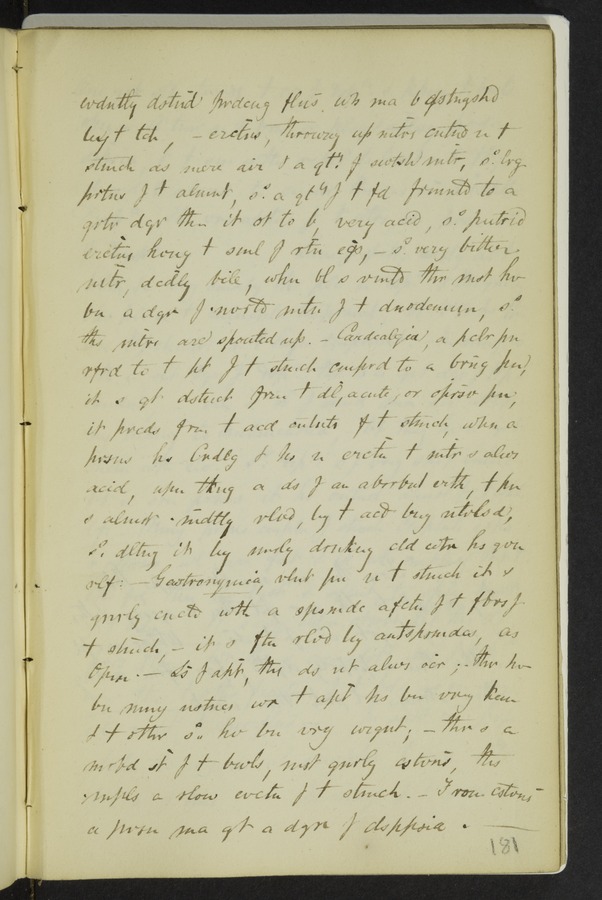 evdntly dstnd prdcng fltus, wh ma b dstngshd
by t tch, – erctns, throwng up mtrs cntnd n t
stmch as mere air & a qty f swtsh mtr, so lrg
prtns f t alment, so a qty f t fd frmntd to a
grtr dgr thn it ot to b, very acid, so putrid
erctns hvng t sml f rtn egs, – so very bitter
mtr, dcdly bile, whn bl s vmtd thr mst hv
bn a dgr f invrtd mtn f t duodenum, so
ths mtrs are spouted up. – Cardialgia, a pclr pn
rfrd to t pt f t stmch cmprd to a brng pn,
it s qt dstnct frm t dl, acute, or oprsv pn,
it prcds frm t acd cntnts f t stmch, whn a
prsns hs Crdlg & hs n erctn t mtr s alws
acid, upn tkng a ds f an absrbnt erth, t pn
s almst imdtly rlvd, by t acd bng ntrlsd,
so dltng it by smply drnkng cld wtr hs gvn
rlf: – Gastronymica, vlnt pn n t stmch it s
gnrly cnctd wth a spsmdc afctn f t fbrs f
t stmch, – it s ftn rlvd by antspsmdcs, as
Opium. – Ls f aptt, ths ds nt alws ocr; – thr hv
bn mny nstncs wr t aptt hs bn vry keen
& t othr so hv bn vry wrgnt; – thr s a
mrbd st f t bwls, mst gnrly cstvns, ths
mpls a slow evctn f t stmch. – From cstvns
a prsn ma gt a dgr f dsppsia. —
181